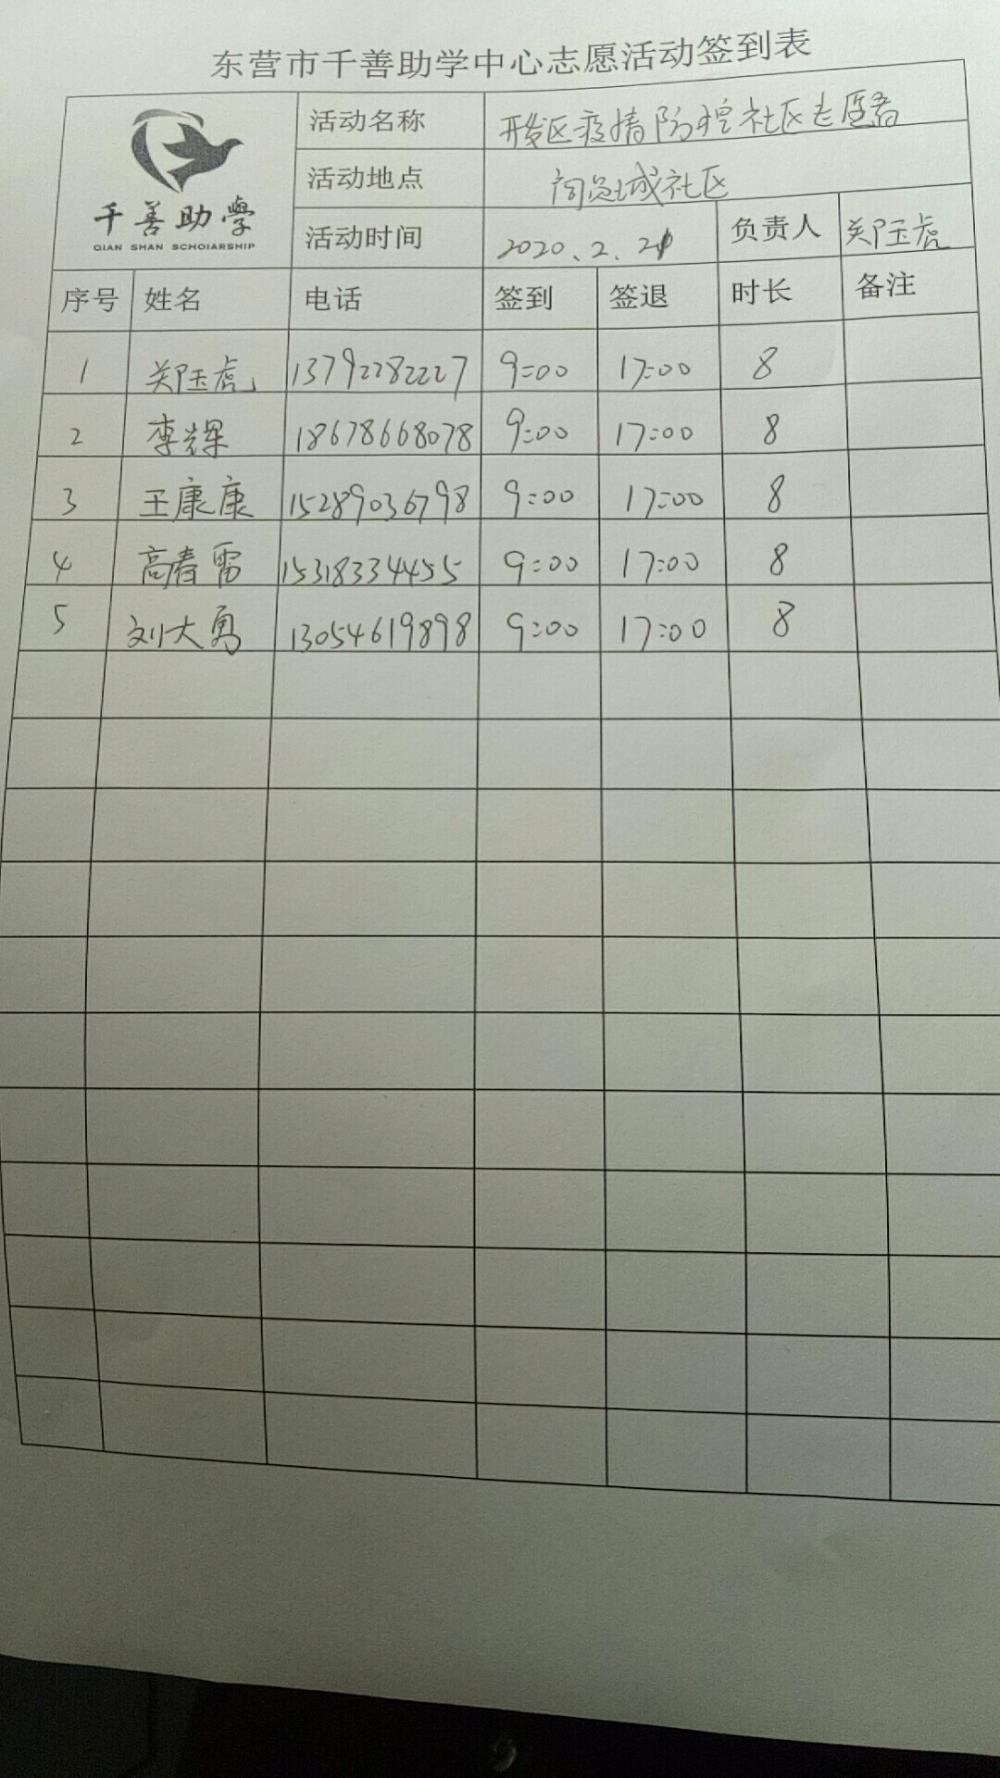 东营市千善助学中心志愿活动签到表
千善助學
QIAN SHAN SCHOIARSHIP
活动名称 开发区疫情防控社区志愿者
活动地点 社区
活动时间 2020.2.21 负责人 郑玉虎
序号 姓名 电话 签到 签退 时长 备注
1 郑玉虎 13792282227 9:00 17:00 8
2 李辉 18678668078 9:00 17:00 8
3 王康康 15289036798 9:00 17:00 8
4 高春雷 15318334455 9:00 17:00 8
5 刘大勇 13054619898 9:00 17:00 8